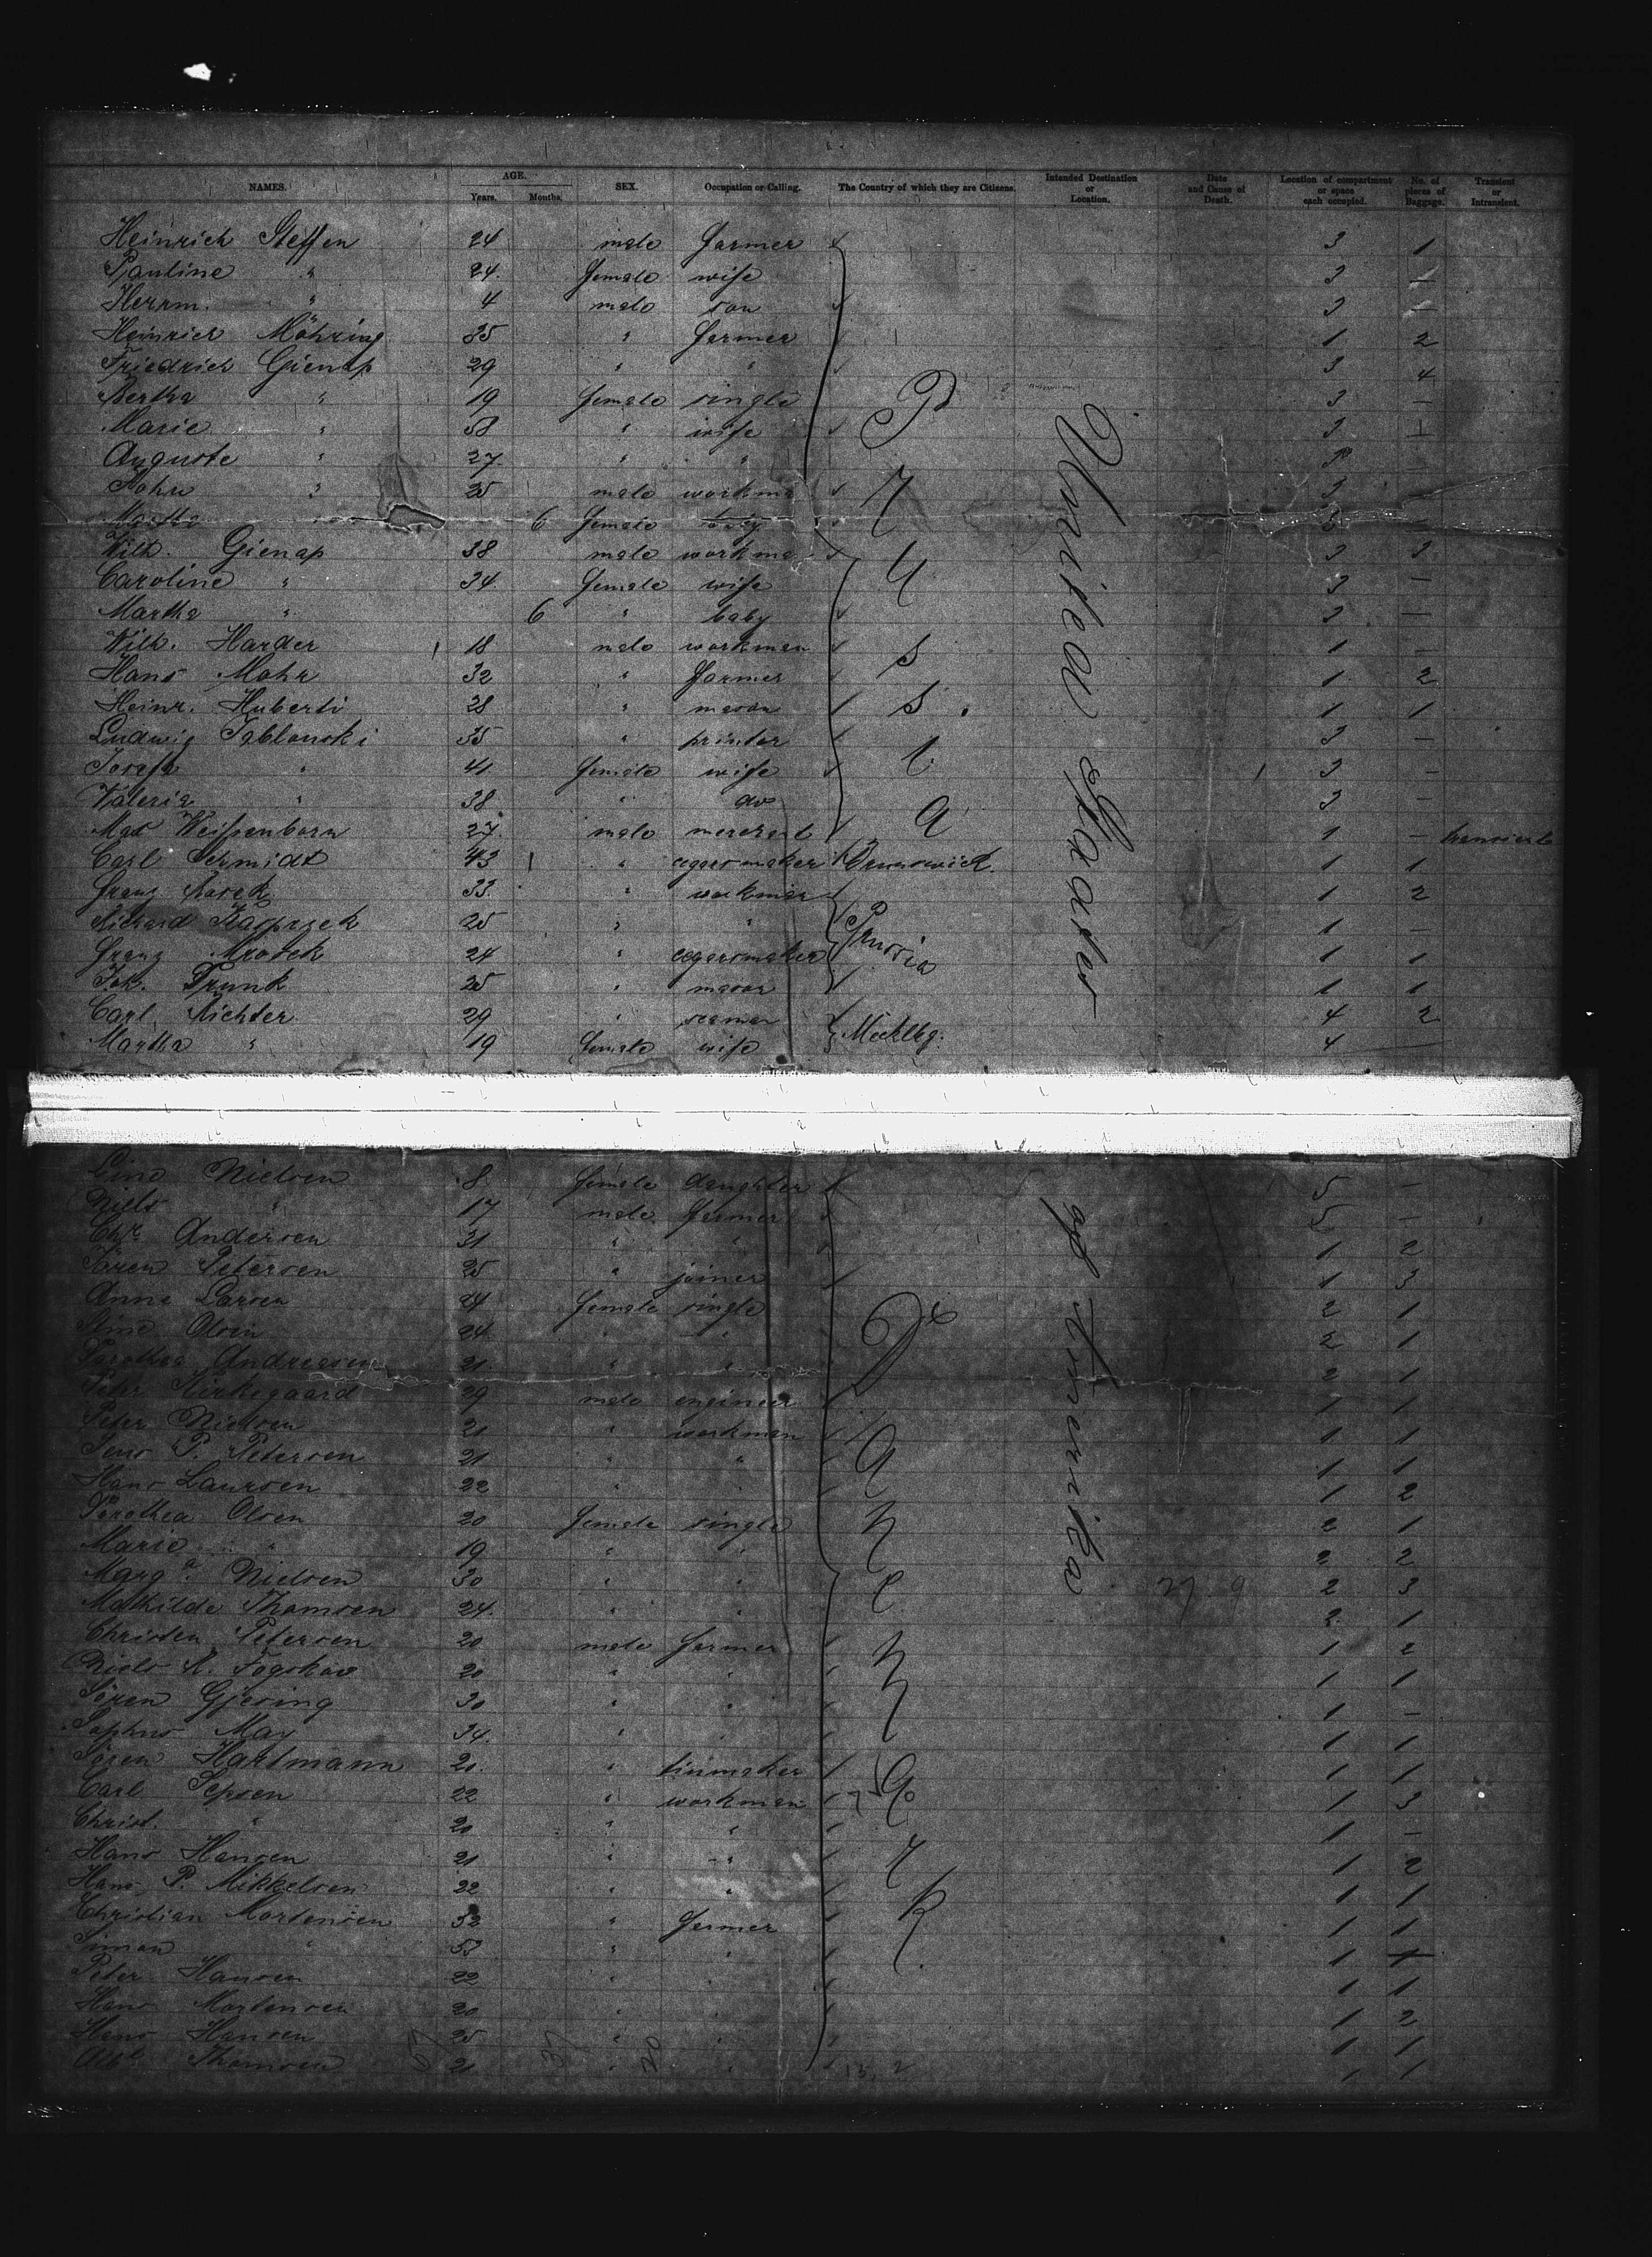 NAMES. AGE. Years. Months. SEX. Occupation or Calling. The Country of which they are Citizens. Intended Destination or Location. Date and Cause of Death. Location of compartment or space each occupied. No. of pieces of Baggage. Transient or Intransient.
Heinrich Steffen 24 male farmer 3 1
Pauline " 24. female wife 3 —
Herrm. " 4 male son 3 —
Heinrich Möhring 35 " farmer 1 2
Friedrich Gienap 29 " " 3 4
Bertha " 19 female single 3 —
Marie " 58 " wife 3 —
Auguste " 27. " " 3 —
" 25 male workma 3
Martha 6 female baby 3
Wilh. Gienap 38 male workma 3 3
Caroline " 34. female wife 3 —
Martha " 6 " baby 3 —
Wilh. Harder 18 male workman 1 —
Hans Mohr 32 " farmer 1 2
Heinr. Huberti 28 " mason 1 1
Ludwig Jablonski 35 " printer 3 —
Josefa " 41. female wife 3 —
Valeria " 38 " do 3 —
Max Weissenborn 27. male merchant 1 — transient
Prussia
United States
Carl Schmidt 43 " cegarsmaker Brunswick. 1 1
Franz 33. " workman 1 2
Richard Kasprzek 25 " " Prussia 1 —
Franz Mrosek 24 " cegarsmaker 1 1
Joh. Trunk 25 " mason 1 1
Carl Richter 29 " seaman Mecklbg. 4 2
Martha " 19 female wife 4 —
Line Nielsen 8. female daughter 5 —
Niels " 17 male farmer 5 —
Chr. Andersen 31 " " 1 2
Sören Petersen 25 " joiner 1 3
Anne Larsen 24 female single 2 1
Stine Olsen 24. " " 2 1
Dorothea Andreasen 21. " " 2 1
Peter Kirkegaard 29 male engineer 1 1
Peter Nielsen 21 " workman 1 1
Jens P. Petersen 21 " " 1 1
Hans Laursen 22 " " 1 2
Dorothea Olsen 20 female single 2 1
Marie " 19 " " 2 2
Marga. Nielsen 30 " " 27 9 2 3
Mathilde Thomsen 24. " " 2 1
Christen Petersen 20 male farmer 1 2
Niels K. Fogskav 20 " " 1 1
Sören Gjesing 30 " " 1 —
Sophus May 34. " " 1 1
Sören Hartmann 20. " tinmaker 1 1
Carl Jepsen 22 " workman 1 3
Christ. " 20 " " 1 —
Hans Hansen 21 " " 1 2
Hans P. Mikkelsen 22 " " 1 1
Christian Mortensen 32 " farmer 1 1
Simon " 53 " " 1 1
Peter Hansen 22 " " 1 1
Hans Mortensen 20 " " 1 2
Hans Hansen 25 " " 1 1
Alb. Thomsen 21 " " 1 1
57 37 20
Denmark
of America